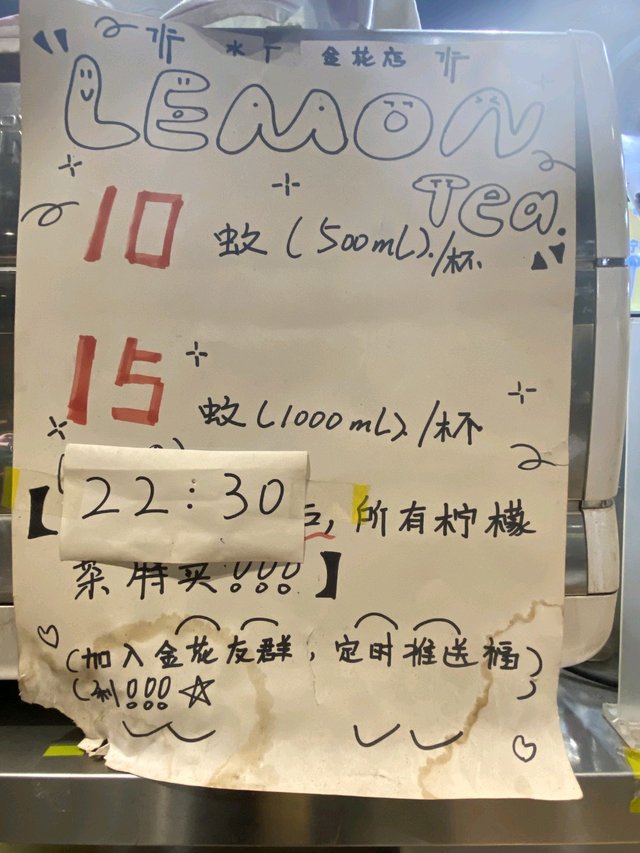 金花店
LEMON
Tea.
10 蚊(500ml)/杯
15 蚊(1000ml)/杯
【22:30后,所有柠檬
茶特买!!!】
(加入金花友群,定时推送福)
(利!!!☆ )